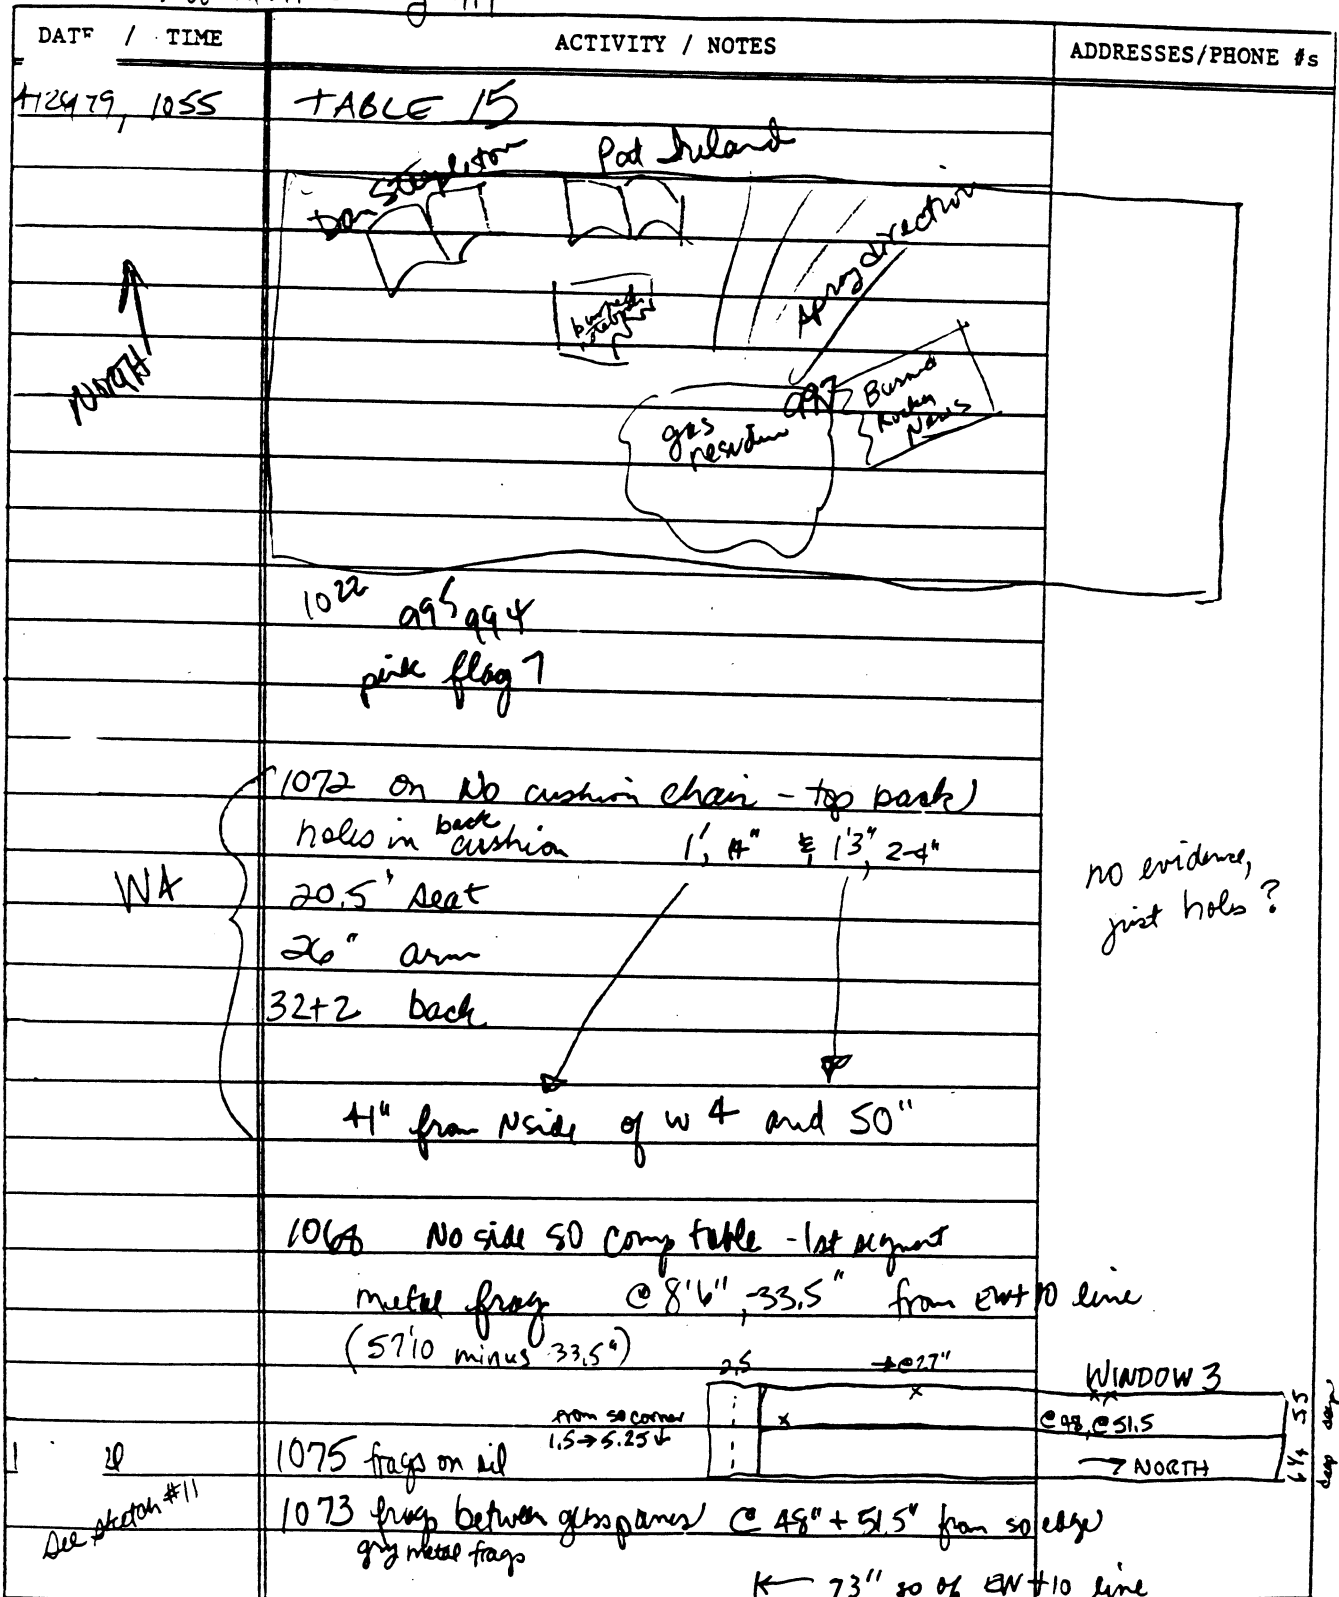 DATE / TIME
ACTIVITY / NOTES
ADDRESSES/PHONE #s
1055
TABLE 15
Dan Steepleton
Pat Ireland
NORTH
burned notebook
spray direction
gas residue
997
Burned Rocky News
1022 995 994
pink flag 7
1072 on No cushion chair - top back
holes in back cushion 1', 4" & 1'3", 2-4"
WA
20.5" seat
26" arm
32+2 back
no evidence,
just holes?
41" from N side of W 4 and 50"
1068 No side SO comp table - 1st segment
metal frag @ 8'6", -33.5" from EW+10 line
(57'10 minus 33.5")
2.5
→@27"
WINDOW 3
x
x x
from so corner
1.5→5.25↓
x
@48, @51.5
5.5 deep
1075 frags on sil
→ NORTH
6 1/4 deep
See sketch #11
1073 frags between glass panes @ 48" + 51.5" from so edge
gry metal frags
← 73" so of EW +10 line